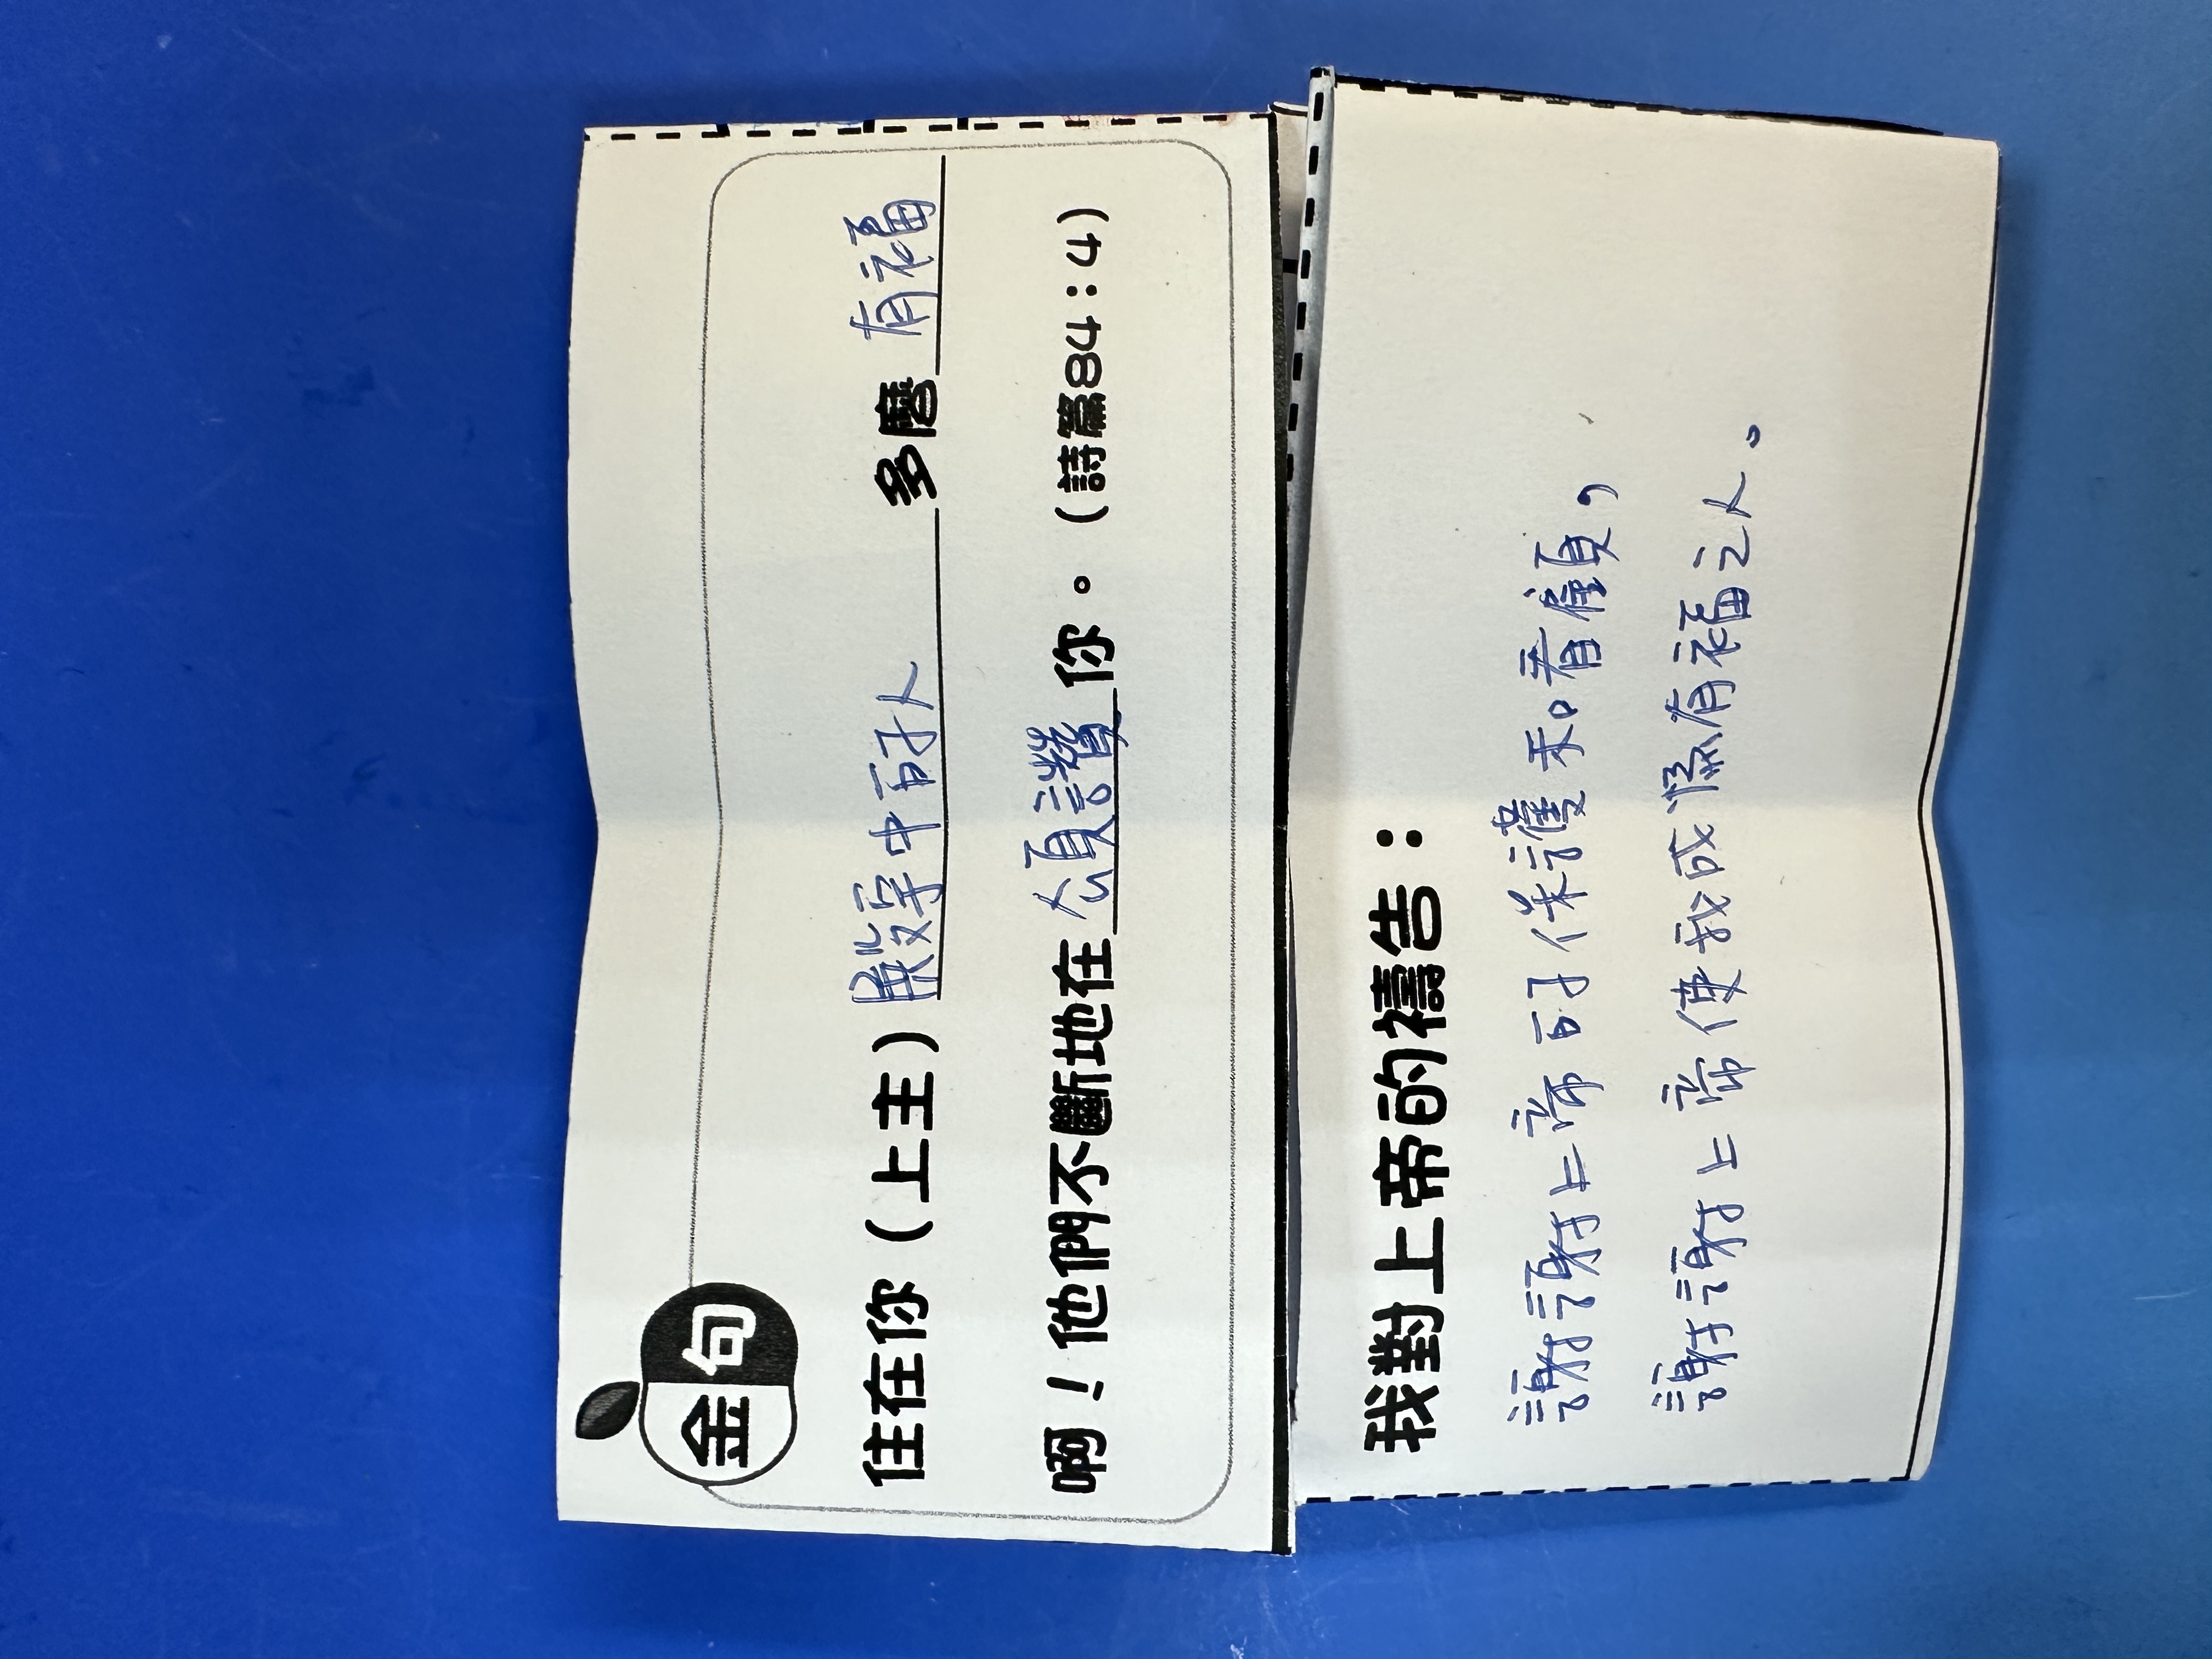 金句
住在你（上主）殿宇中的人多麼有福
啊！他們不斷地在頌讚你。（詩篇84：4）
我對上帝的禱告：
謝謝上帝的保護和看顧，
謝謝上帝使我成為有福之人。